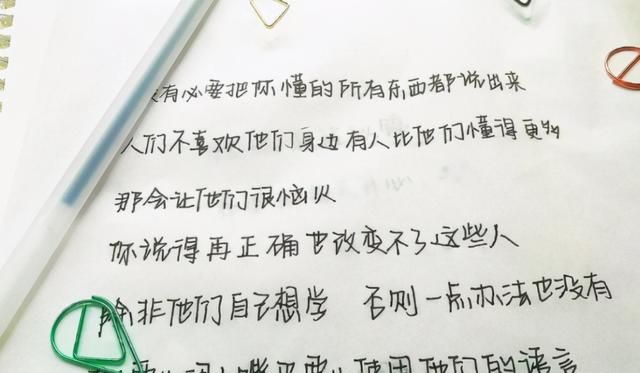 有必要把你懂的所有东西都说出来
人们不喜欢他们身边有人比他们懂得更多
那会让他们很恼火
你说得再正确也改变不了这些人
除非他们自己想学 否则一点办法也没有
使用他们的语言